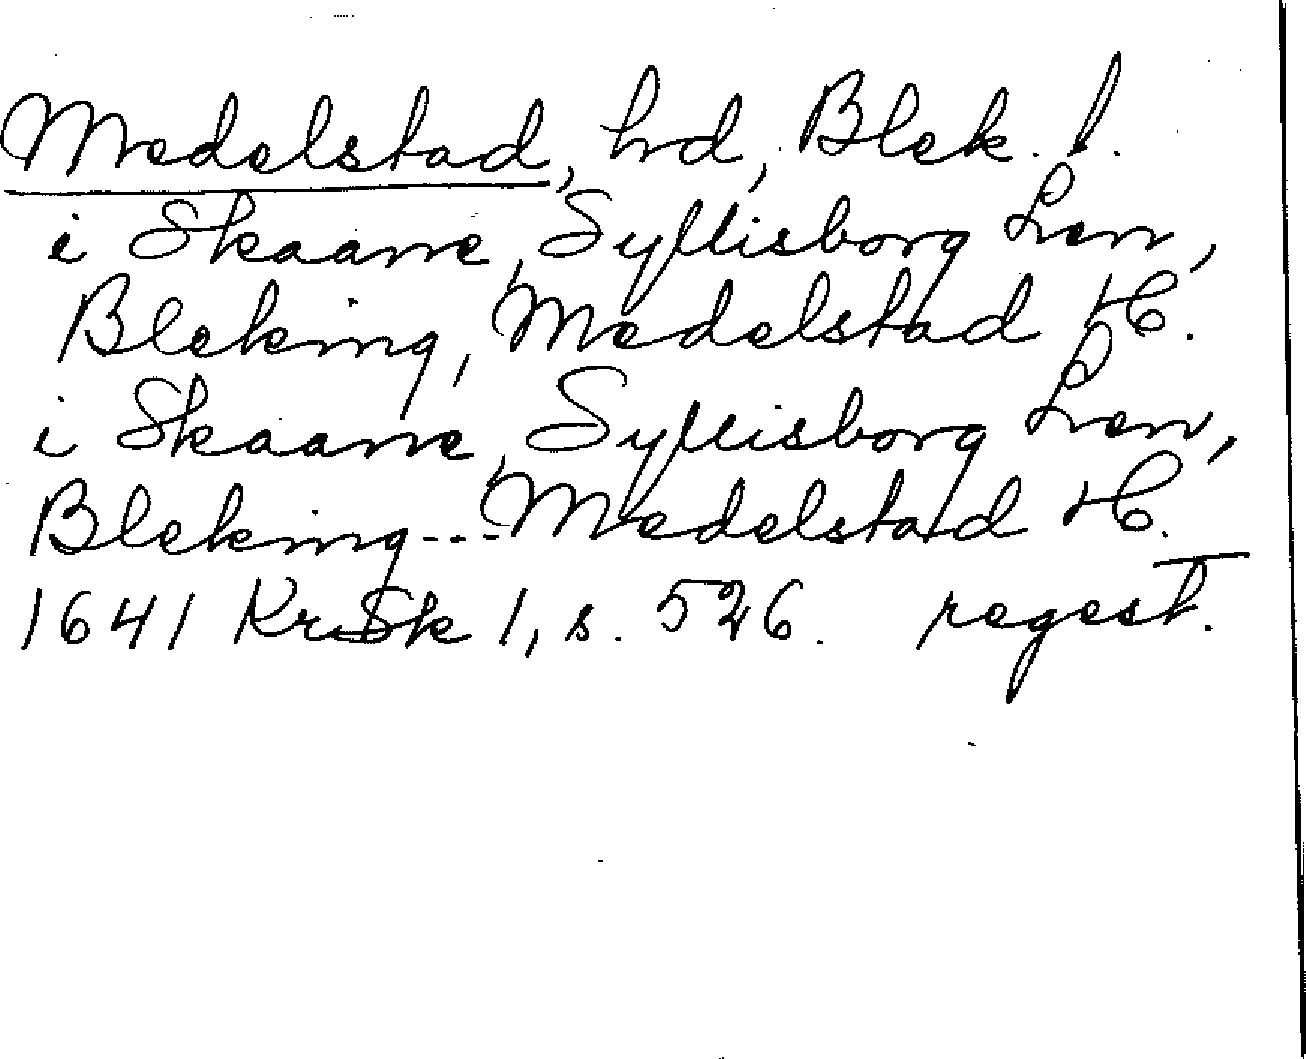 Medelstad, hd, Blek. l.
i Skaane, Syllisborg Len,
Bleking, Medelstad H.
i Skaane, Syllisborg Len,
Bleking --- Medelstad H.
1641 KrSk 1, s. 526. regest.